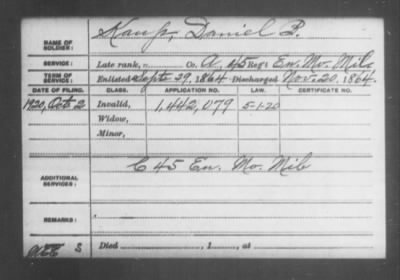 NAME OF SOLDIER: Kamp, Daniel P.
SERVICE: Late rank, „ Co. A, 45 Reg't En. Mo. Mil.
TERM OF SERVICE: Enlisted Sept 29, 1864 Discharged Nov. 20, 1864
DATE OF FILING. CLASS. APPLICATION NO. LAW. CERTIFICATE NO.
1920, Oct. 2 Invalid, 1,442,079 5-1-20
Widow,
Minor,
ADDITIONAL SERVICES: C 45 En. Mo. Mil
REMARKS:
S Died , 1 , at